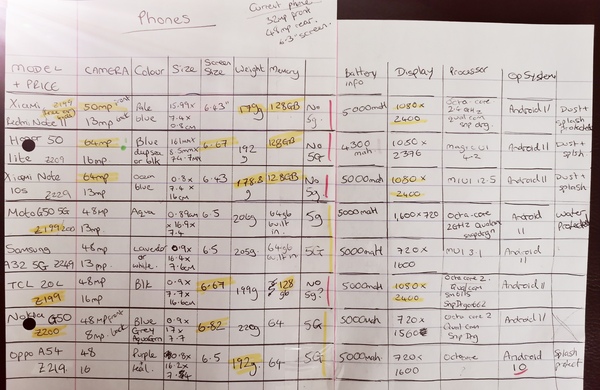 Phones
Current phone
32mp front
48mp rear.
6.3-screen.
MODEL + PRICE CAMERA Colour Size Screen Size Weight Memory battery info Display Processor Op System
Xiaomi £199
Redmi Note 11 50mp front 13mp back Pale blue 15.99x 7.4x 0.8cm 6.43" 179g 128GB No 5g 5000mah 1080x 2400 Octa-core Android 11 Dust + splash protected
Honor 50 lite £209 64mp 16mp Blue or blk 161mm x 6.67 192g 128GB No 5G 4300 mah 1080x 2376 Magic UI 4.2 Android 11 Dust + splash
Xiaomi Note 10s £229 64mp 13mp Ocean blue 0.8x 7.4x 16cm 6.43 178.8g 128GB No 5g 5000mah 1080x 2400 MIUI 12.5 Android 11 Dust + splash
Moto G50 5G £199 48mp 13mp Aqua 0.89cm x 16.9x 7.4 6.5 206g 64gb built in 5g 5000mah 1,600x720 octa-core 2GHz Android 11 water protected
Samsung A32 5G £249 48mp 13mp Lavender or white. 0.9x 16.4x 7.6cm 6.5 205g 64gb built in 5G 5000mah 720x 1600 MUI 3.1 Android 11
TCL 20L £199 48mp 16mp Blk 0.9x 7.7x 16cm 6.67 199g 128 gb No 5g? 5000mah 1080x 2400 Octa core 2. Android 11
Nokia G50 £200 48mp front 8mp back Blue Grey 0.9x 17x 7.7 6.82 220g 64 5G 5000mah 720x 1560 Octa core 2 Android 11
Oppo A54 £219. 48 16 Purple teal. 0.8x 16.2x 7.4 6.5 192g 64 5G 5000mah 720x 1600 Octacore ? Android 10 Splash protect